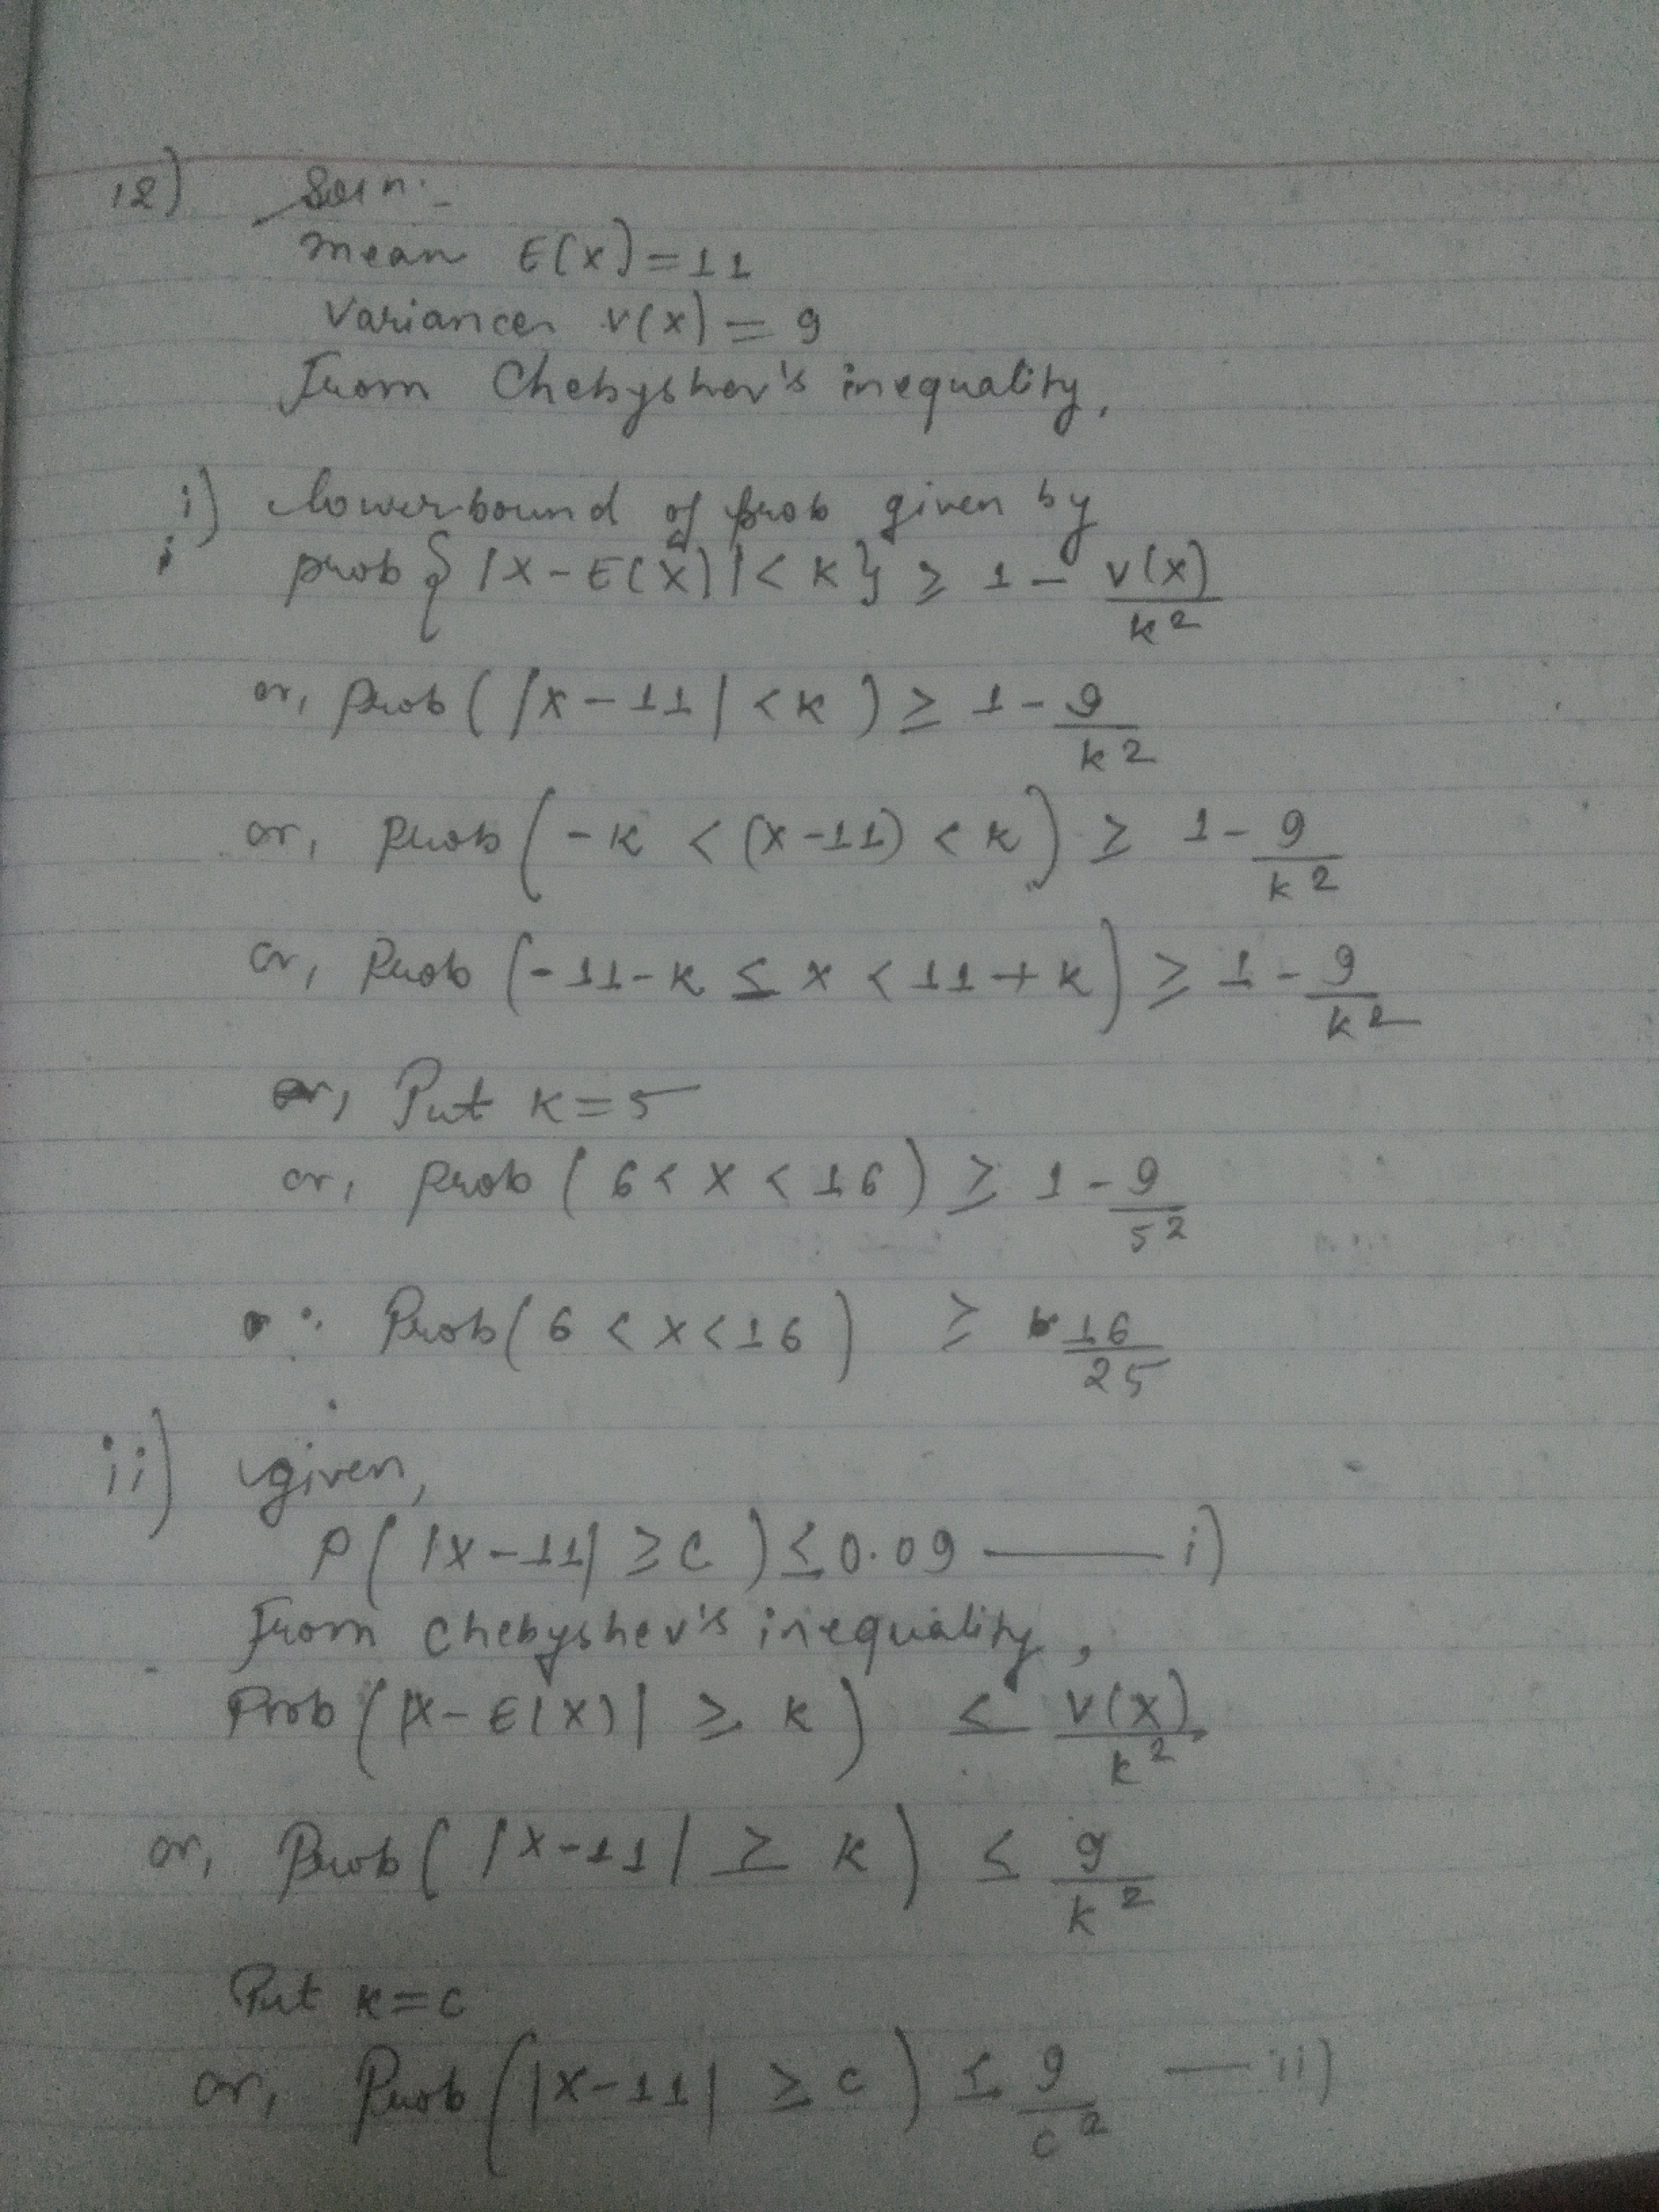 12) Soln.
mean E(x)=11
Variance V(x) = 9
From Chebyshev's inequality,
i) lower bound of prob given by
prob{|X-E(X)|<K} ≥ 1 - V(X)/K²
or, prob(|X-11|<K) ≥ 1 - 9/K²
or, prob(-K < (X-11) < K) ≥ 1 - 9/K²
or, prob(-11-K ≤ X < 11+K) ≥ 1 - 9/K²
or, Put K=5
or, prob(6 < X < 16) ≥ 1 - 9/5²
∴ Prob(6 < X < 16) ≥ 16/25
ii) given,
P(|X-11| ≥ C) ≤ 0.09 —— i)
From Chebyshev's inequality,
Prob(|X-E(X)| ≥ K) ≤ V(X)/K²
or, Prob(|X-11| ≥ K) ≤ 9/K²
Put K=C
or, Prob(|X-11| ≥ C) ≤ 9/C² — ii)